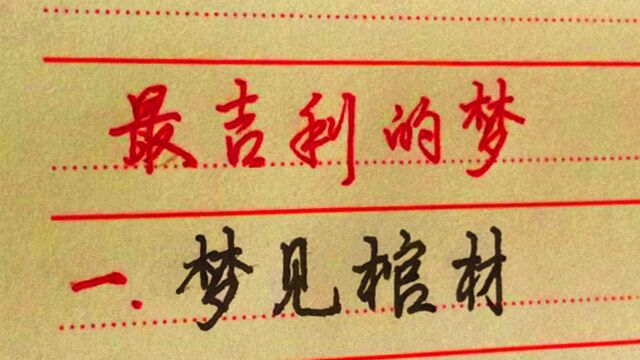 最吉利的梦
一.梦见棺材